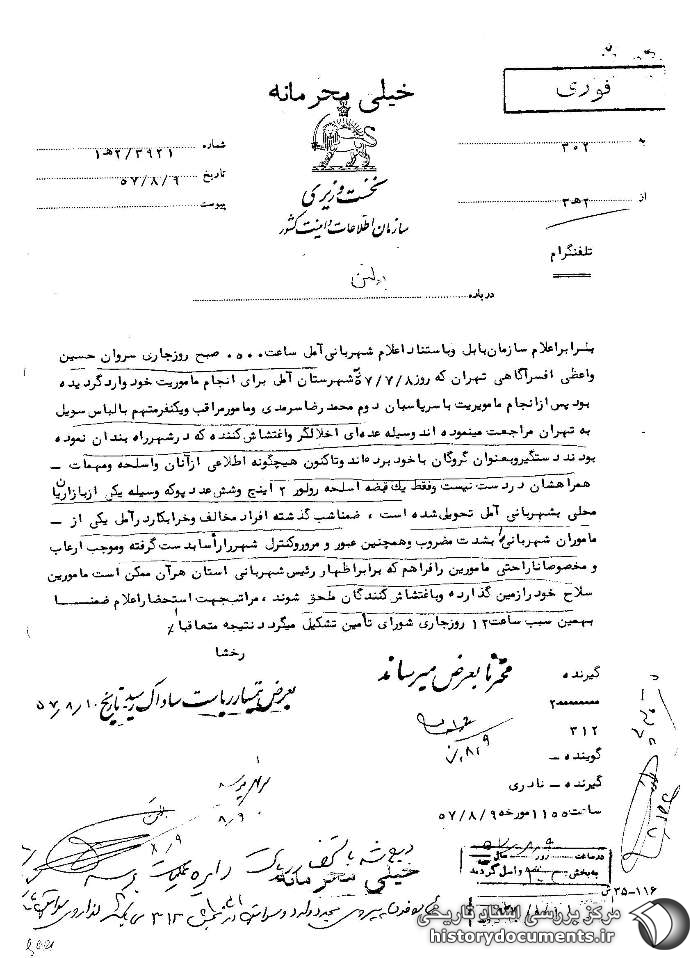 فوری
خیلی محرمانه
نخست وزیری
سازمان اطلاعات و امنیت کشور
به ۳۰۲
از ۲هـ۳
تلفنگرام
شماره ۱هـ۲/۳۹۲۱
تاریخ ۵۷/۸/۹
پیوست
درباره
بنابراعلام سازمان بابل وباستناد اعلام شهربانی آمل ساعت ۰۵۰۰ صبح روزجاری سروان حسین
واعظی افسرآگاهی تهران که روز ۵۷/۷/۸ شهرستان آمل برای انجام ماموریت خود واردگردیده
بود پس ازانجام ماموریت با سرپاسبان دوم محمد رضا سرمدی ومامورمراقب ویکنفرمتهم بالباس سویل
به تهران مراجعت مینموده اند وسیله عده‌ای اخلالگر واغتشاش کننده که درشهرراه بندان نموده
بودند دستگیروبعنوان گروگان باخود برده‌اند وتاکنون هیچگونه اطلاعی ازآنان واسلحه ومهمات -
همراهشان در دست نیست وفقط یک قبضه اسلحه رولور ۲ اینچ وشش عدد پوکه وسیله یکی ازبازاریان
محلی بشهربانی آمل تحویل شده است ، ضمناشب گذشته افراد مخالف وخرابکاردرآمل یکی از -
ماموران شهربانی بشدت مضروب وهمچنین عبور و مروروکنترل شهررارأسا بدست گرفته وموجب ارعاب
و مخصوصاناراحتی مامورین رافراهم که برابراظهار رئیس شهربانی استان هرآن ممکن است مامورین
سلاح خودرازمین گذارده وباغتشاش کنندگان ملحق شوند ، مراتب جهت استحضاراعلام ضمنا
بهمین سبب ساعت ۱۲ روزجاری شورای تأمین تشکیل میگردد نتیجه متعاقبا
رخشا
محترما بعرض میرساند
بعرض تیمسار ریاست ساواک رسید تاریخ ۵۷/۸/۱۰
گیرنده
۳۱۲
گوینده -
گیرنده - نادری
ساعت ۱۱۵۵ مورخه ۵۷/۸/۹
۸/۹
در ساعت روز سال
به بخش واصل گردید
خیلی محرمانه
۳۵-۱۱۶
مرکز بررسی اسناد تاریخی
historydocuments.ir